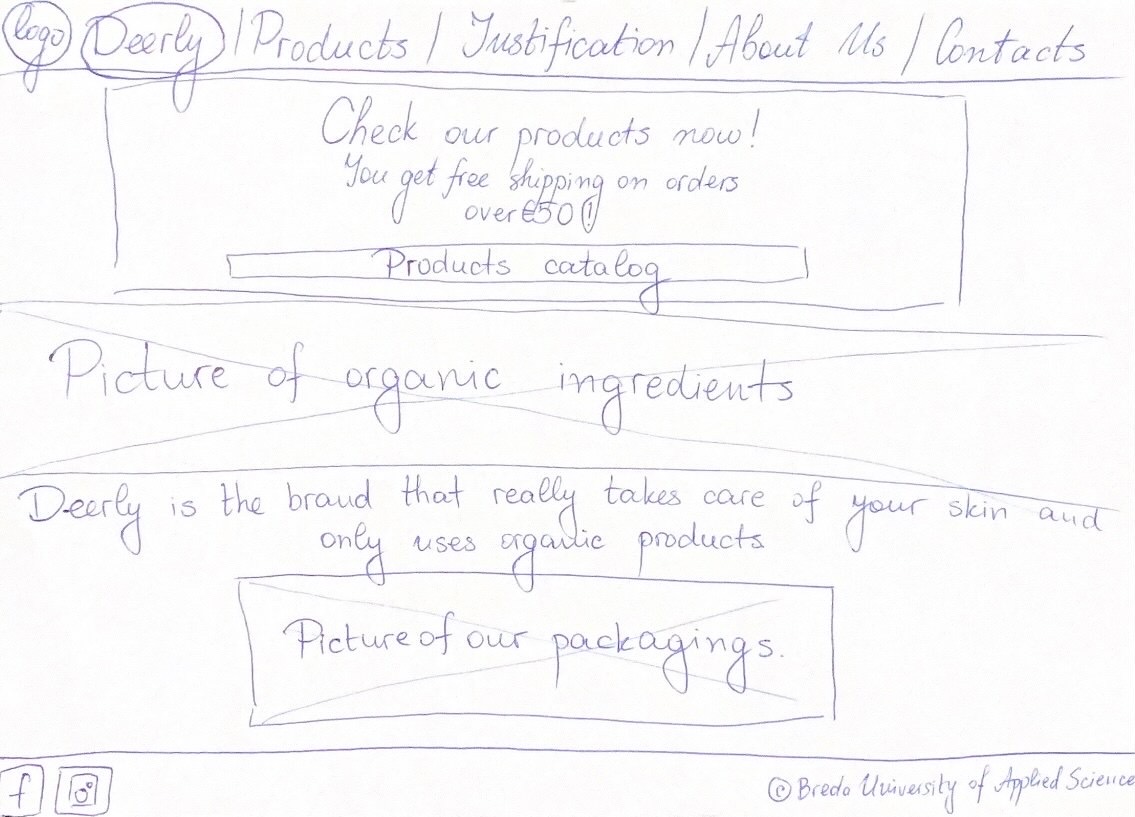 logo Deerly / Products / Justification / About Us / Contacts
Check our products now!
You get free shipping on orders
over €50!
Products catalog
Picture of organic ingredients
Deerly is the brand that really takes care of your skin and
only uses organic products
Picture of our packagings.
f © Breda University of Applied Science